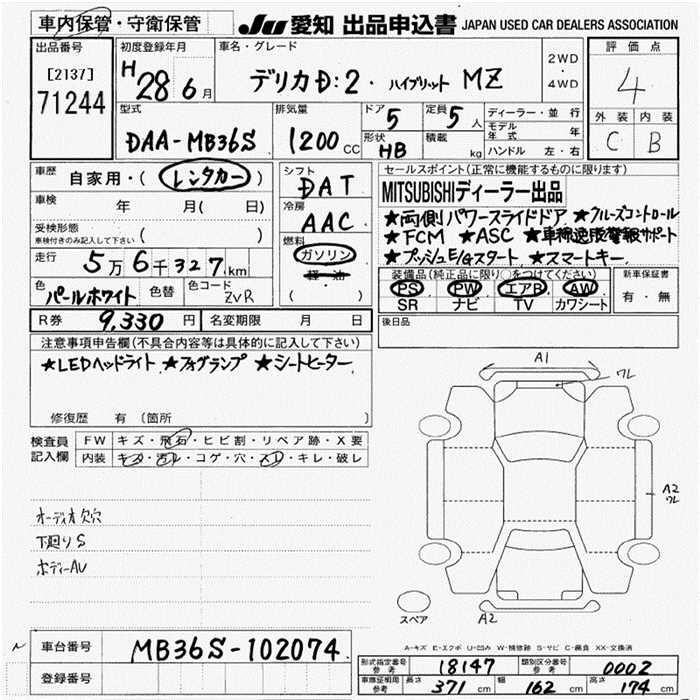 車内保管・守衛保管
JU 愛知 出品申込書 JAPAN USED CAR DEALERS ASSOCIATION
出品番号
[2137]
71244
初度登録年月
H 28 6月
車名・グレード
デリカD:2・ハイブリット MZ
2WD
・
4WD
評価点
4
外装 内装
C B
型式
DAA-MB36S
排気量
1200 CC
ドア 5
形状 HB
定員 5人
積載 kg
ディーラー・並行
モデル年式 年
ハンドル 左・右
車歴 自家用・(レンタカー)
車検 年 月( 日)
受検形態
車検付きのみ記入して下さい ( )
走行 5万6千327km
色 パールホワイト 色替 色コード ZVR
シフト DAT
冷房 AAC
燃料
ガソリン
軽・油
( )
セールスポイント(正常に機能するものに限ります)
MITSUBISHIディーラー出品
★両側パワースライドドア ★クルーズコントロール
★FCM ★ASC ★車線逸脱警報サポート
★プッシュE/Gスタート ★スマートキー
装備品(純正品に限り○をつけてください)
PS PW エアB AW
SR ナビ TV カワシート
新車保証書
有・無
R券 9,330円 名変期限 月 日
後日品
注意事項申告欄(不具合内容等は具体的に記入して下さい)
★LEDヘッドライト ★フォグランプ ★シートヒーター
修復歴 有 (箇所
検査員記入欄
FW キズ・飛石・ヒビ割・リペア跡・X要
内装 キズ・汚れ・コゲ・穴・スレ・キレ・破レ
オーディオ欠穴
下廻りS
ボディーAU
A1
ワレ
A2
ワレ
A2
スペア
A-キズ E-エクボ U-凹み W-補修跡 S-サビ C-腐食 XX-交換済
車台番号 MB36S-102074
登録番号
型式指定番号 参考 18147 類別区分番号 参考 0002
車庫証明用 参考 長さ 371 cm 幅 162 cm 高さ 174 cm